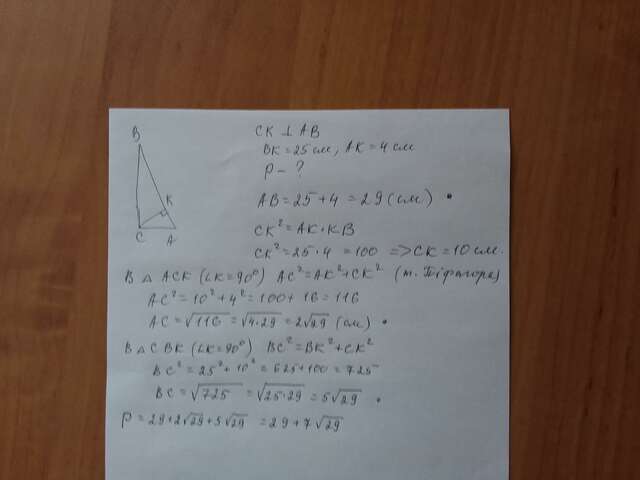 B
K
C A
CK ⊥ AB
BK = 25 см, AK = 4 см
P - ?
AB = 25 + 4 = 29 (см)
CK² = AK · KB
CK² = 25 · 4 = 100 => CK = 10 см.
В △ ACK (∠K = 90°) AC² = AK² + CK² (т. Піфагора)
AC² = 10² + 4² = 100 + 16 = 116
AC = √116 = √4·29 = 2√29 (см)
В △ CBK (∠K = 90°) BC² = BK² + CK²
BC² = 25² + 10² = 625 + 100 = 725
BC = √725 = √25·29 = 5√29
P = 29 + 2√29 + 5√29 = 29 + 7√29